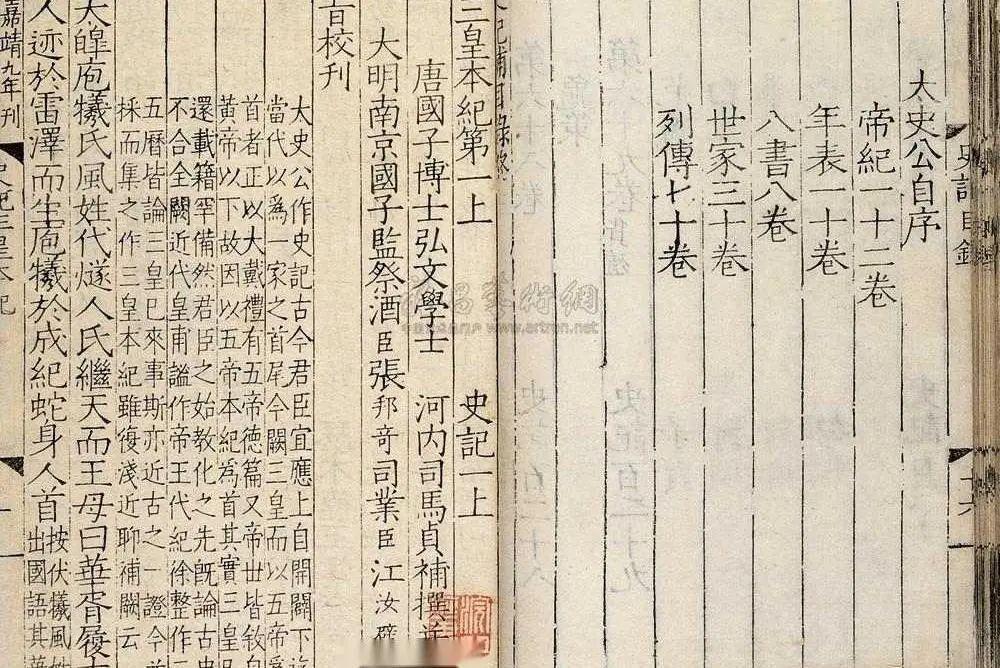 史記目錄
十六
太史公自序
帝紀一十二卷
年表一十卷
八書八卷
世家三十卷
列傳七十卷
三皇本紀第一上 史記一上
唐國子博士弘文學士 河内司馬貞補撰
大明南京國子監祭酒臣張邦奇司業臣江汝璧
旨校刊
大史公作史記古今君臣宜應上自開闢下
當代以為一家之首尾今闕三皇而以五帝為
首者正以大戴禮有五帝德篇又帝世皆敘自
黃帝以下故因以五帝本紀為首其實三皇
還載籍罕備然君臣之始教化之先旣論古史
不合全闕近代皇甫謐作帝王代紀徐整作三
五曆皆論三皇已來事斯亦近古之一證今並
採而集之作三皇本紀雖復淺近聊補闕云
大皥庖犧氏風姓代燧人氏繼天而王母曰華胥履大
人迹於雷澤而生庖犧於成紀蛇身人首
按伏犧風姓
出國語其華
嘉靖九年刊
史記三皇本紀
一
雅昌藝術網
www.artron.net